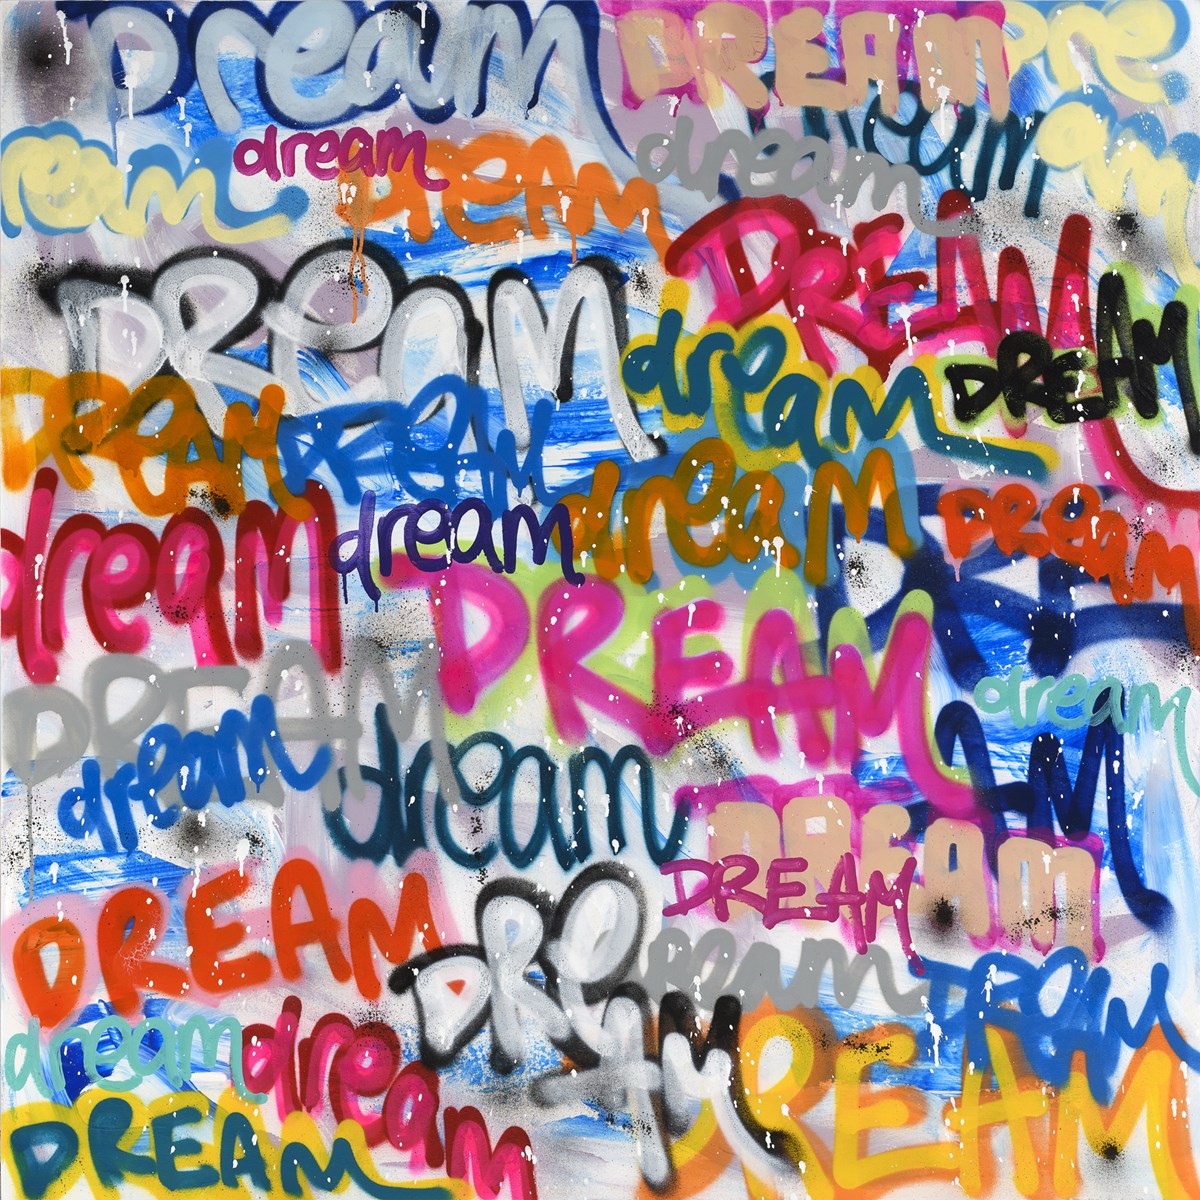 Dream
DREAM
Dre
dream
ream
DREAM
dream
eam
am
DREAM
DReaM
DREAM
dream
DREAM
DREAM
dream
DReaM
dream
dream
DRE
DREAM
DREAM
dream
dream
dream
AM
DREAM
DREAM
DREAM
DRe
ream
DReAM
AM
dream
dream
DREAM
DREAM